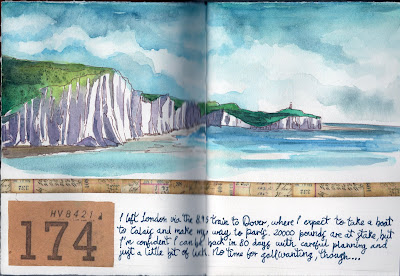 HVB421
174
I left London via the 8.45 train to Dover, where I expect to take a boat
to Calais and make my way to Paris. 20000 pounds are at stake, but
I'm confident I can be back in 80 days with careful planning and
just a little bit of luck. No time for gallivanting, though....